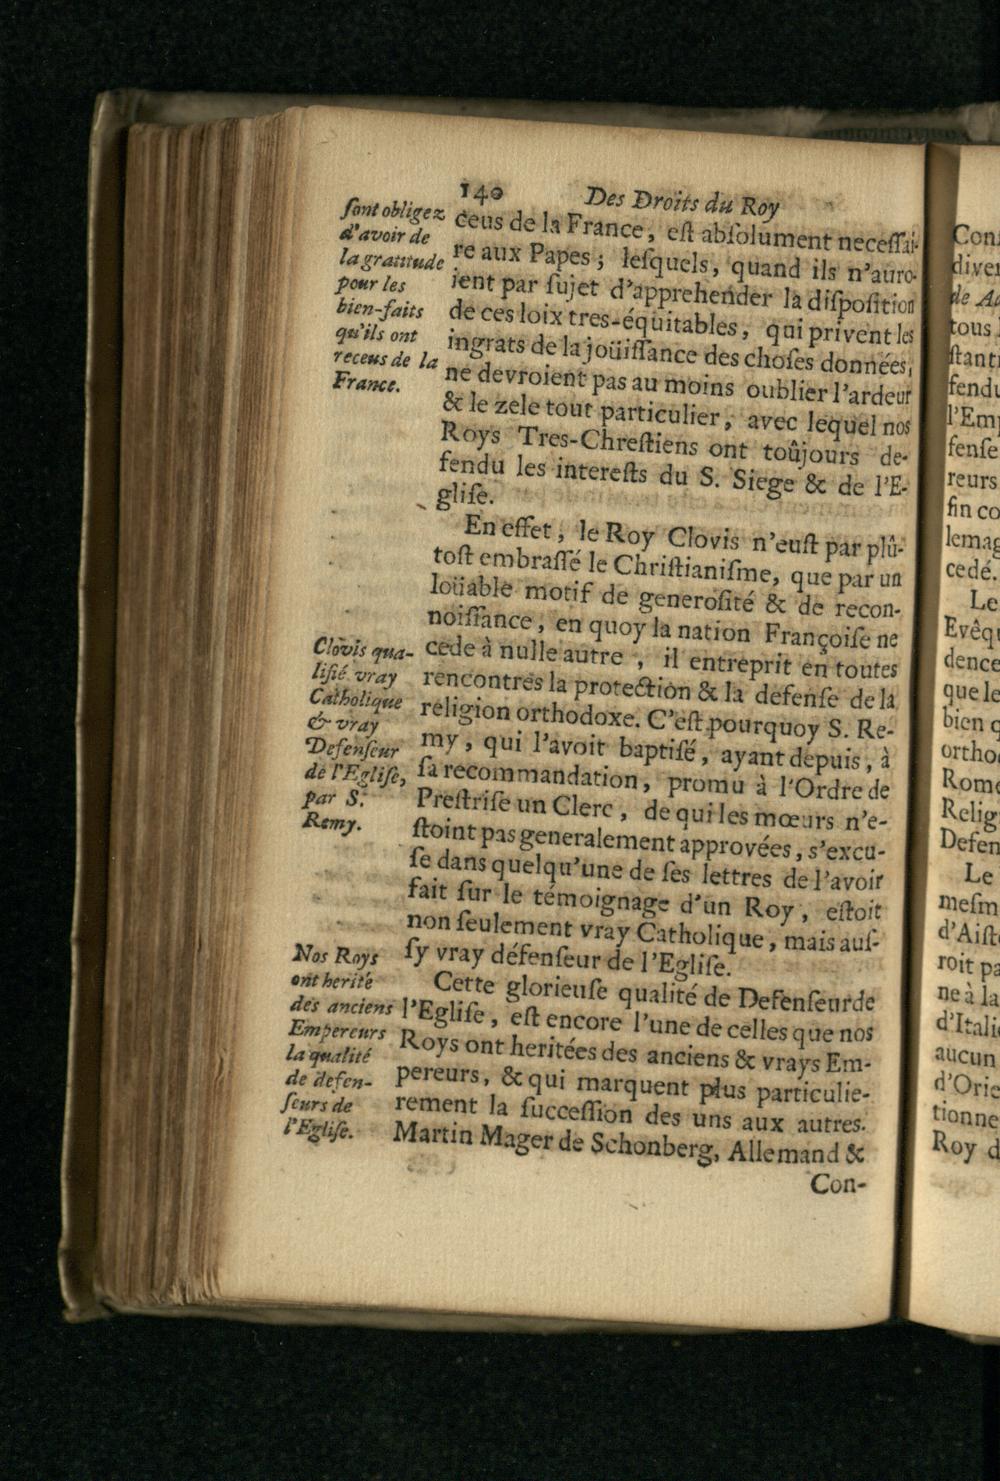 140 Des Droits du Roy
ſont obligez
d'avoir de
la gratitude
pour les
bien-faits
qu'ils ont
receus de la
France.
ceus de la France, eſt abſolument neceſſai-
re aux Papes; leſquels, quand ils n'auro-
ient par ſujet d'apprehender la diſpoſition
de ces loix tres-équitables, qui privent les
ingrats de la joüiſſance des choſes données,
ne devroient pas au moins oublier l'ardeur
& le zele tout particulier, avec lequel nos
Roys Tres-Chreſtiens ont toûjours de-
fendu les intereſts du S. Siege & de l'E-
gliſe.
En effet, le Roy Clovis n'euſt par plû-
toſt embraſſé le Chriſtianiſme, que par un
loüable motif de generoſité & de recon-
noiſſance, en quoy la nation Françoiſe ne
cede à nulle autre, il entreprit en toutes
rencontres la protection & la defenſe de la
religion orthodoxe. C'eſt pourquoy S. Re-
my, qui l'avoit baptiſé, ayant depuis, à
ſa recommandation, promu à l'Ordre de
Preſtriſe un Clerc, de qui les mœurs n'e-
ſtoint pas generalement approvées, s'excu-
ſe dans quelqu'une de ſes lettres de l'avoir
fait ſur le témoignage d'un Roy, eſtoit
non ſeulement vray Catholique, mais auſ-
ſy vray défenſeur de l'Egliſe.
Clovis qua-
lifié vray
Catholique
& vray
Defenſeur
de l'Egliſe,
par S.
Remy.
Cette glorieuſe qualité de Defenſeur de
l'Egliſe, eſt encore l'une de celles que nos
Roys ont heritées des anciens & vrays Em-
pereurs, & qui marquent plus particulie-
rement la ſucceſſion des uns aux autres.
Martin Mager de Schonberg, Allemand &
Nos Roys
ont herité
des anciens
Empereurs
la qualité
de defen-
ſeurs de
l'Egliſe.
Con-
Conſ
diver
de Ad
tous
ſtant
fendu
l'Emp
fenſe
reurs
fin co
lemag
cedé.
Le
Evêqu
dence
que le
bien q
orthod
Rome
Relig
Defen
Le
meſm
d'Aiſt
roit pa
ne à la
d'Itali
aucun
d'Orie
tionne
Roy d